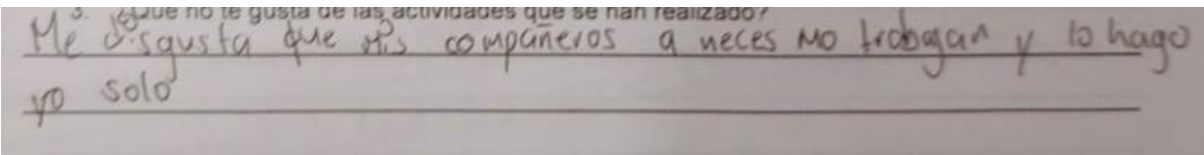 3. ¿Qué no te gusta de las actividades que se han realizado?
Me disgusta que mis compañeros a veces no trabajan y lo hago
yo solo